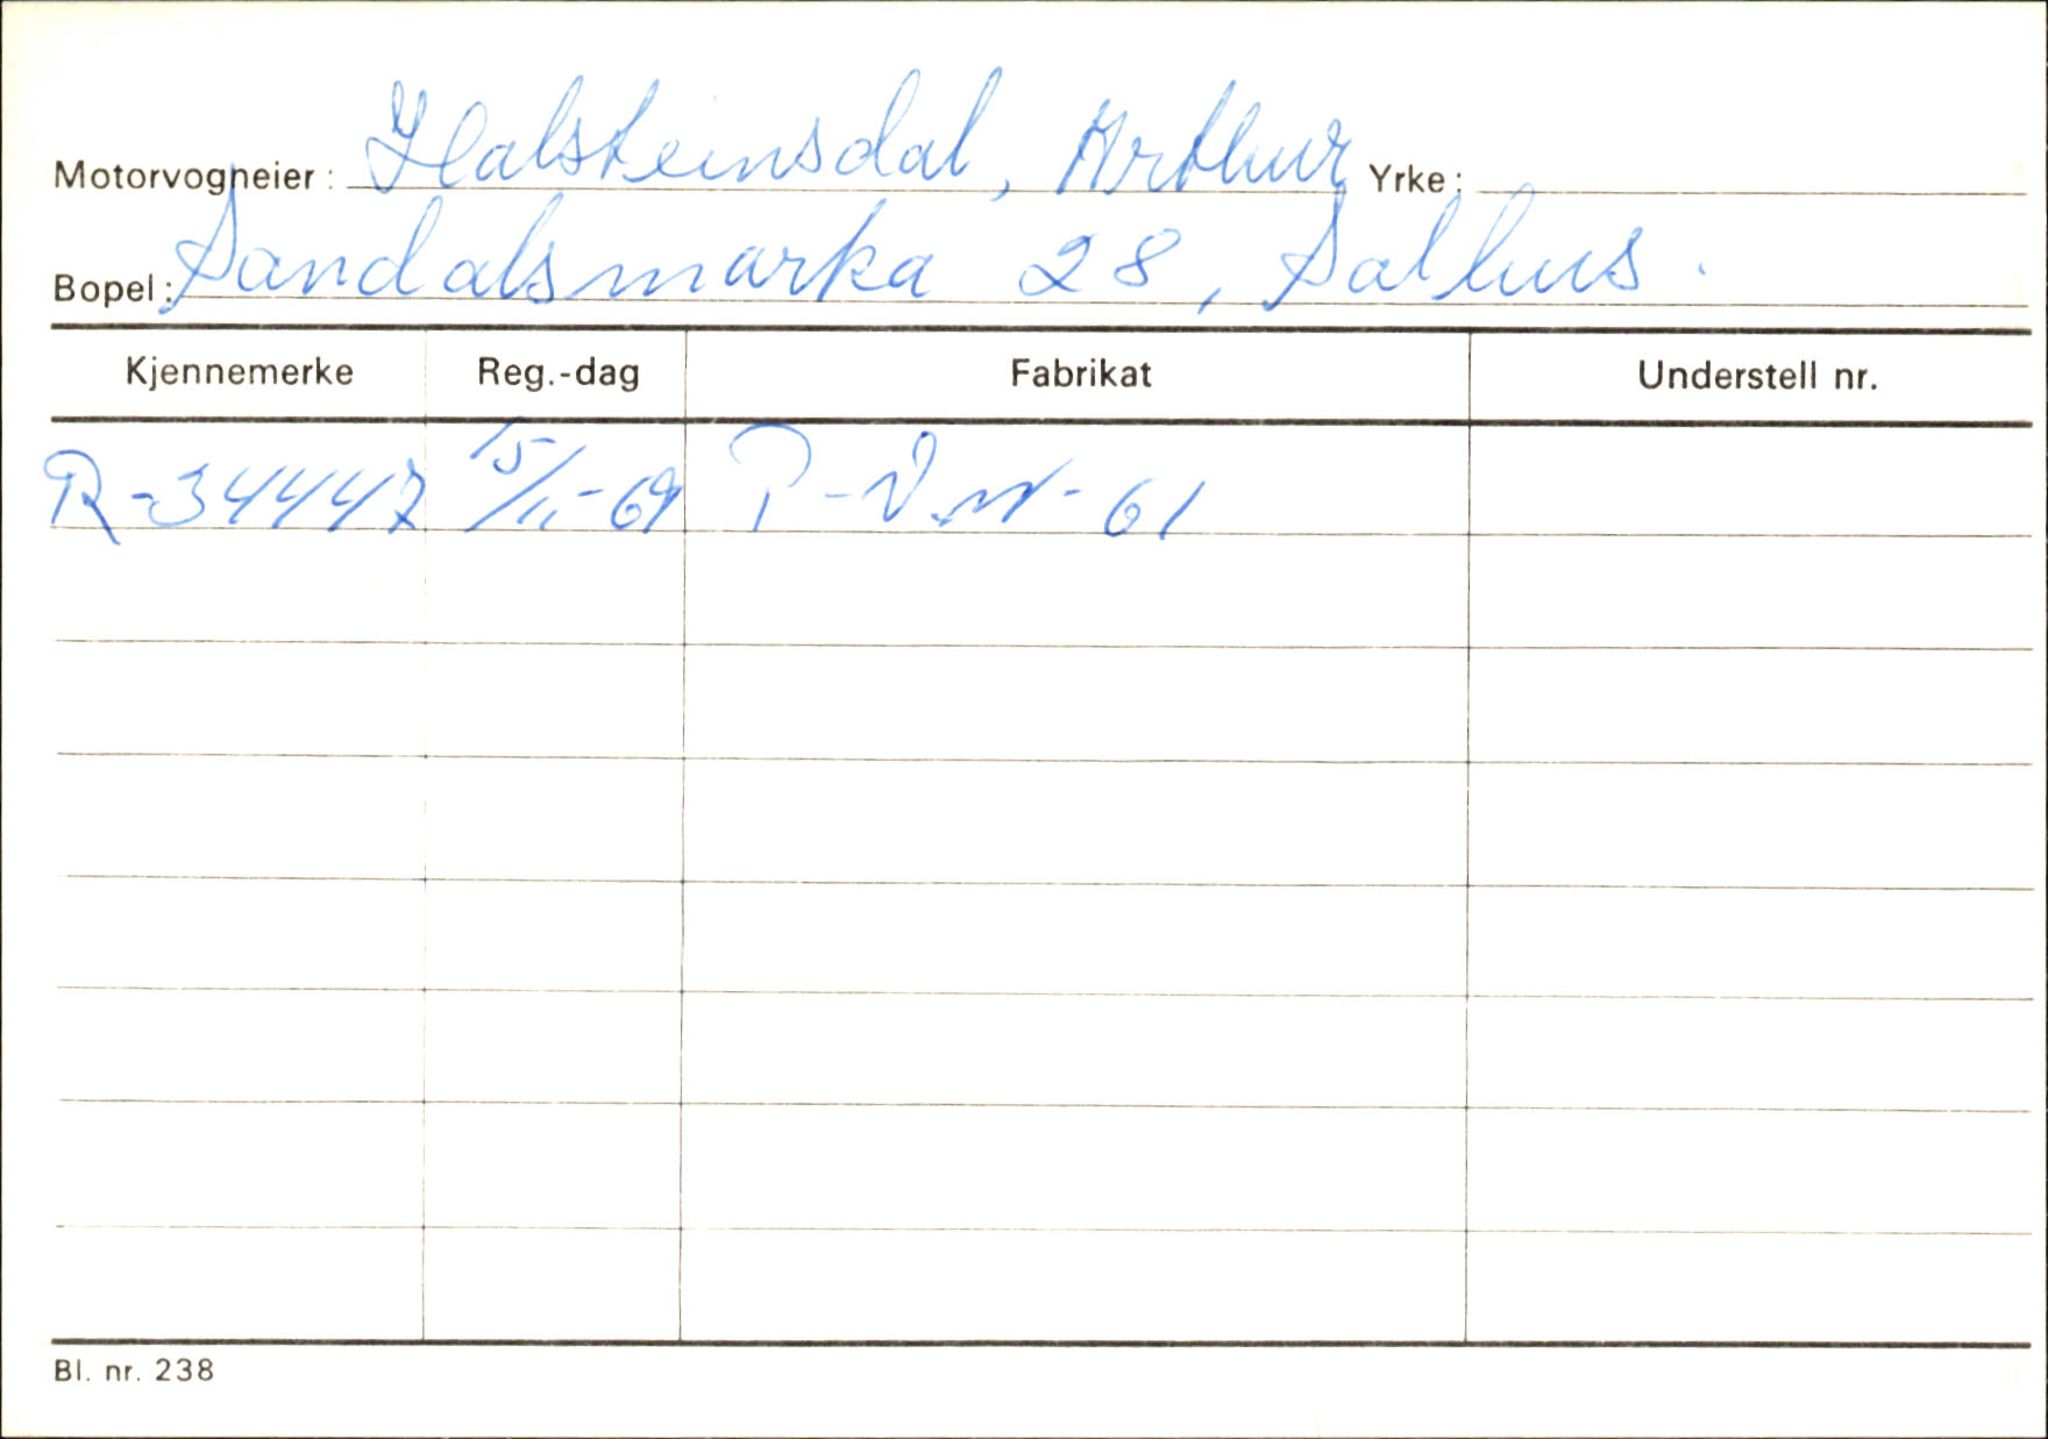 Motorvogneier: Halsteinsdal, Arthur Yrke:
Bopel: Sandalsmarka 28, Salhus.
Kjennemerke Reg.-dag Fabrikat Understell nr.
R-34447 15/11-69 P-V.W-61
Bl. nr. 238